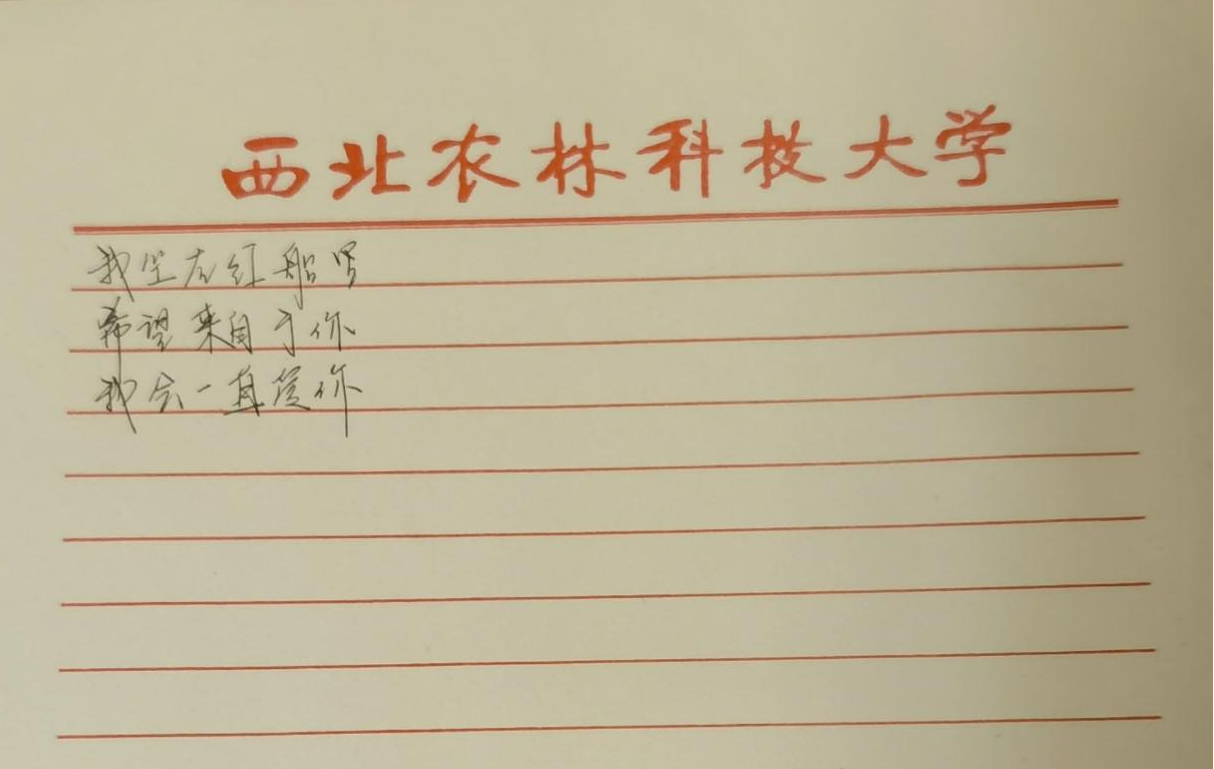 西北农林科技大学
我坐在红船里
希望来自于你
我会一直爱你